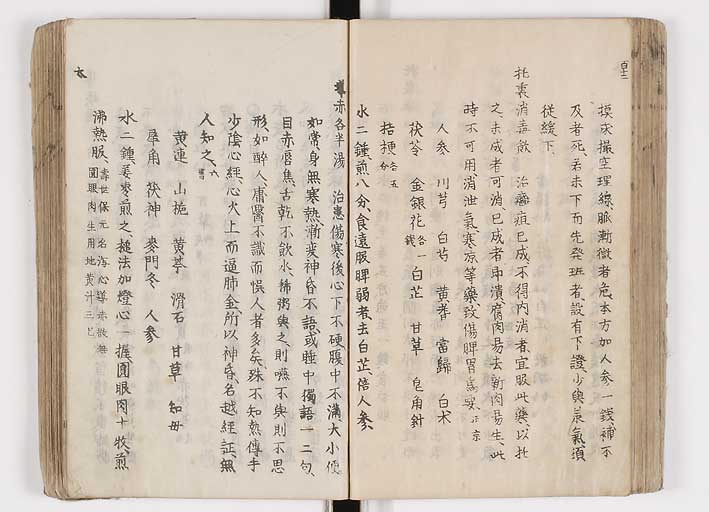 百十二
摸衣撮空理線脈漸微者危本方加人参一銭補不
及者死若未下而先発班者設有下證少與承氣湯
従緩下
托裏消毒飲 治癰疽已成不得内消者宜服此薬以托
之未成者可消已成者即潰腐肉易去新肉易生此
時不可用消泄氣寒凉等薬致傷脾胃為妥正宗
人参 川芎 白芍 黄耆 當歸 白朮
茯苓 金銀花各一銭 白芷 甘草 皂角針
桔梗各五分
水二鍾煎八分食遠服脾弱者去白芷倍人参
導赤各半湯 治患傷寒後心下不硬腹中不満大小便
如常身無寒熱漸変神昏不語或睡中獨語一二句
目赤唇焦舌乾不飲水稀粥與之則嚥不與則不思
形如醉人庸醫不識而悞人者多矣殊不知熱傳手
少陰心經心火上而逼肺金所以神昏名越經証無
人知之六書
黄連 山梔 黄芩 滑石 甘草 知母
犀角 茯神 麥門冬 人参
水二鍾姜枣煎之槌法加燈心一握圓眼肉十枚煎
沸熱服壽世保元名海心導赤散無
圓眼肉生用地黄汁三匕